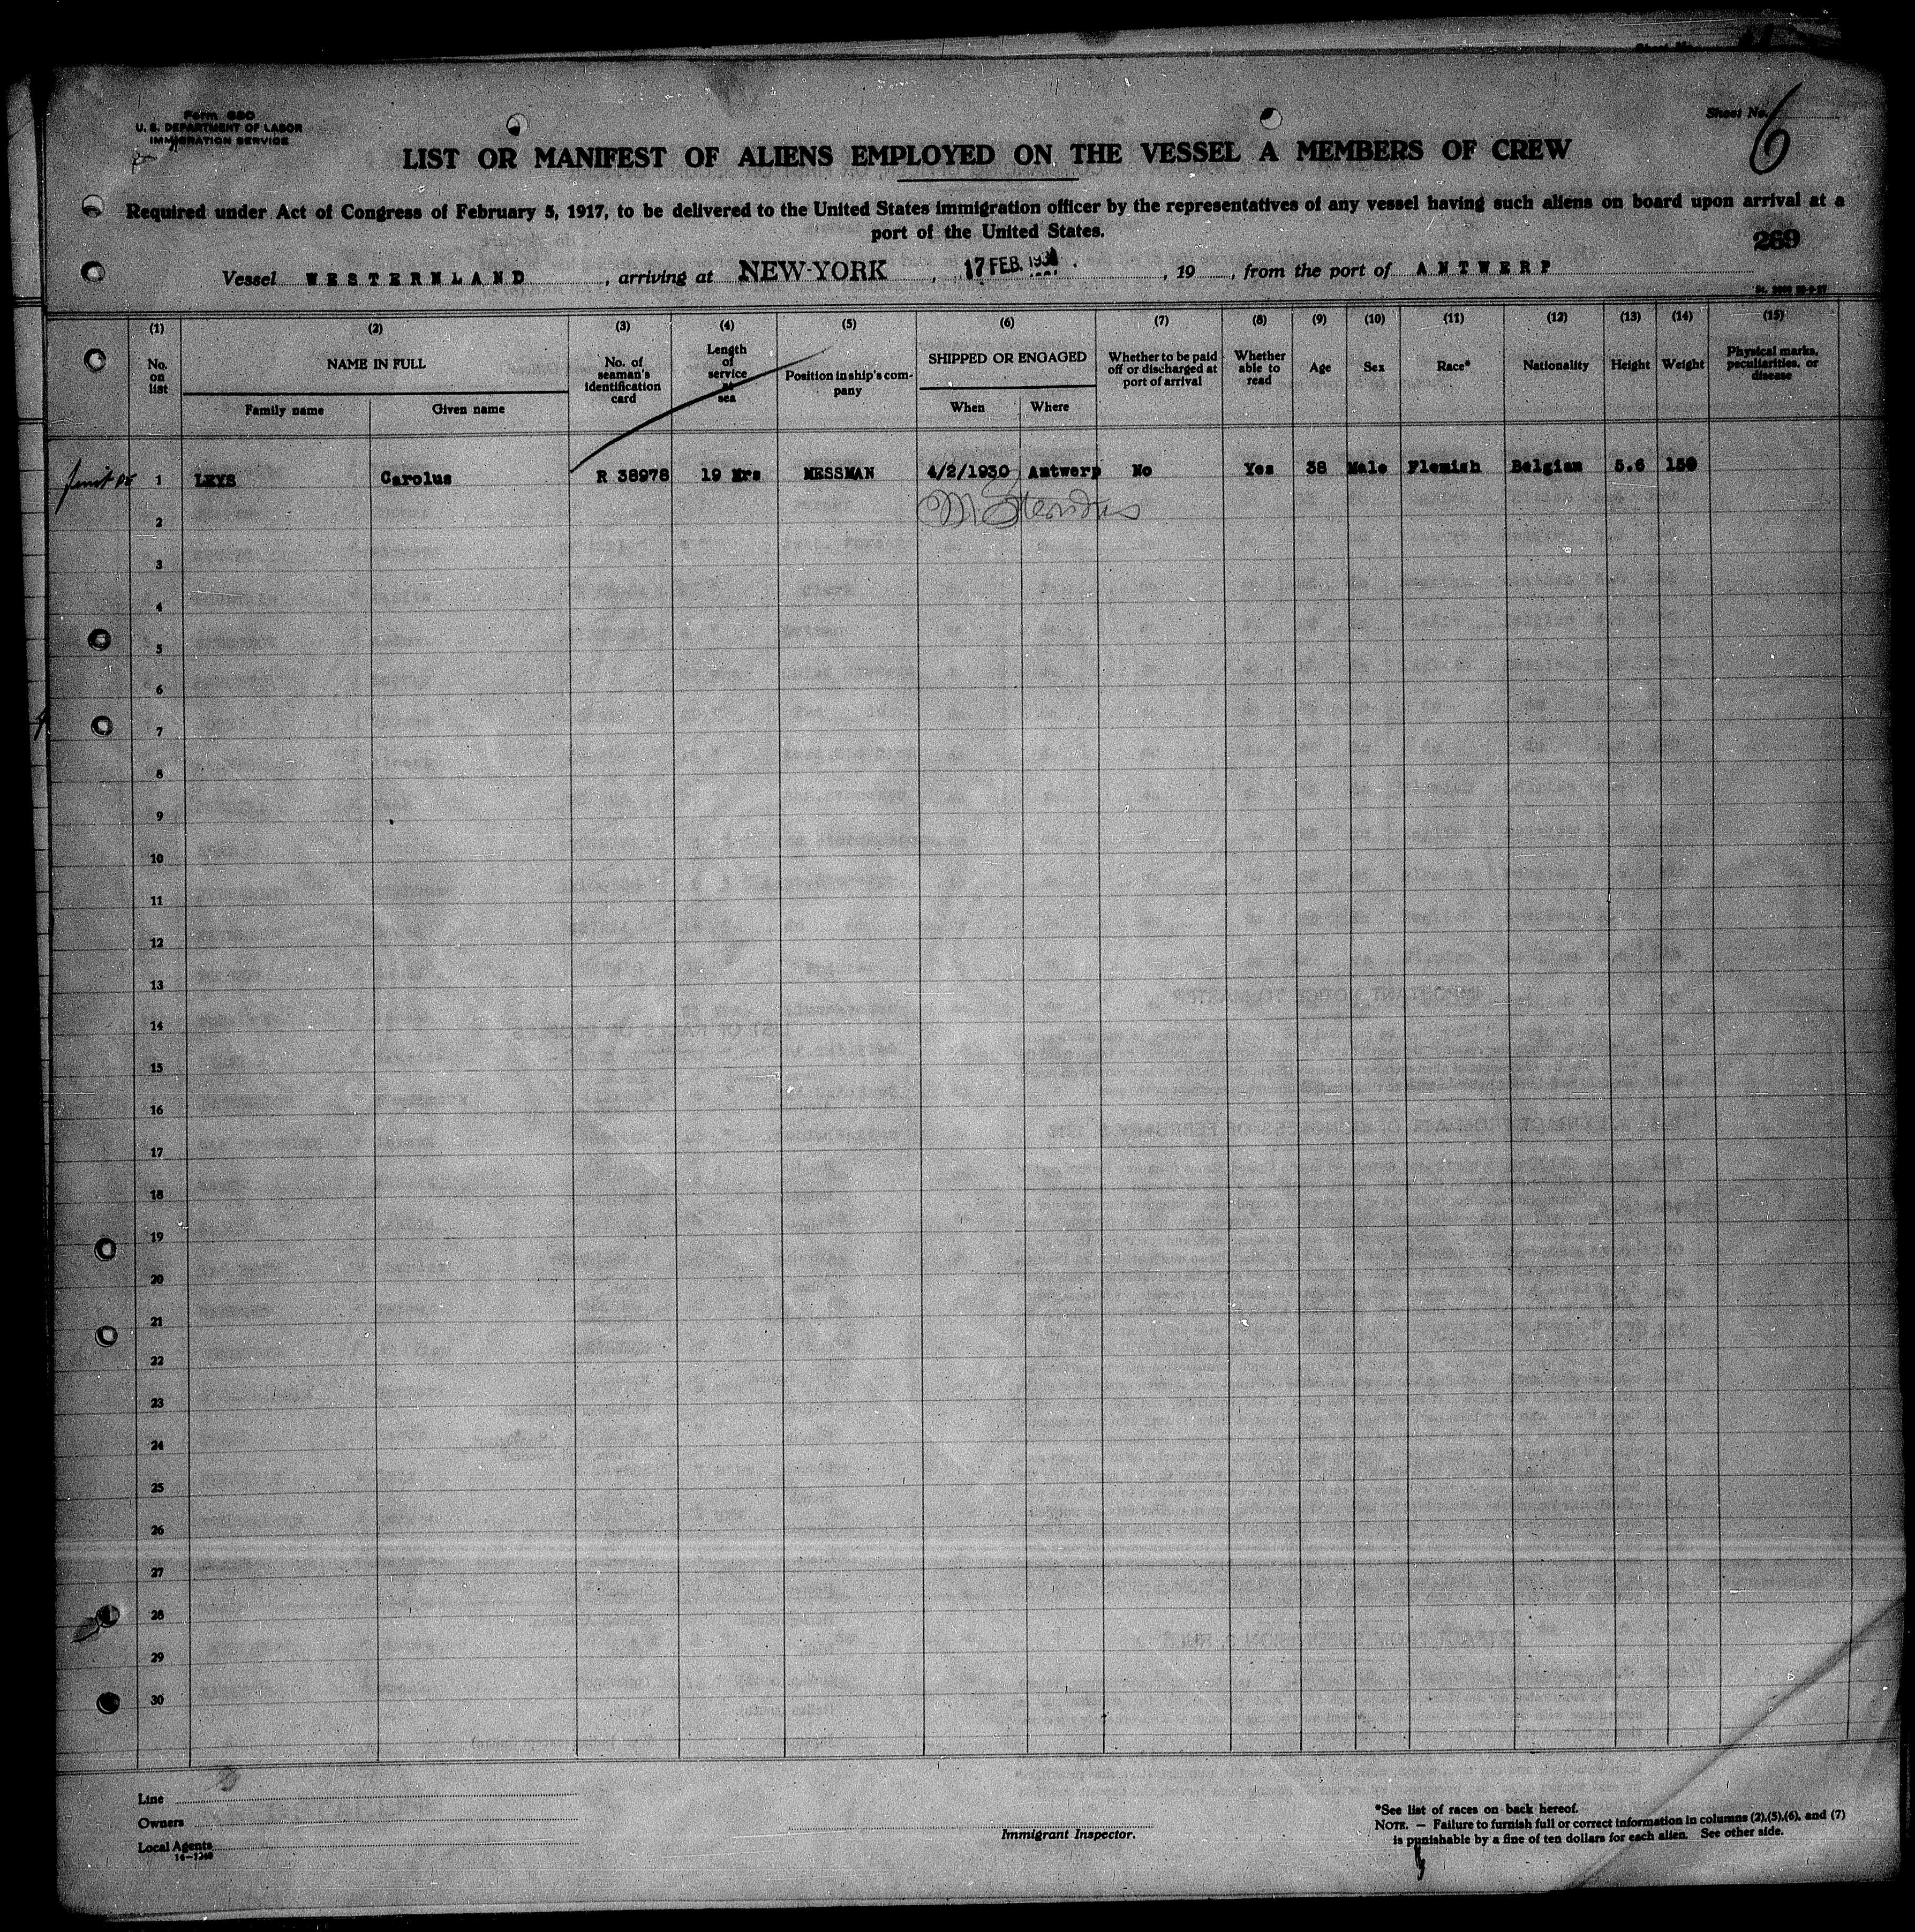 Sheet No. 6
Form 680
U. S. DEPARTMENT OF LABOR
IMMIGRATION SERVICE
LIST OR MANIFEST OF ALIENS EMPLOYED ON THE VESSEL A MEMBERS OF CREW
Required under Act of Congress of February 5, 1917, to be delivered to the United States immigration officer by the representatives of any vessel having such aliens on board upon arrival at a
port of the United States.
269
Vessel WESTERNLAND, arriving at NEW-YORK, 17 FEB. , 19 , from the port of ANTWERP
(1) (2) (3) (4) (5) (6) (7) (8) (9) (10) (11) (12) (13) (14) (15)
No. on list
NAME IN FULL
Family name
Given name
No. of seaman's identification card
Length of service at sea
Position in ship's company
SHIPPED OR ENGAGED
When
Where
Whether to be paid off or discharged at port of arrival
Whether able to read
Age
Sex
Race*
Nationality
Height
Weight
Physical marks, peculiarities, or disease
1 LEYS Carolus R 38978 19 Yrs MESSMAN 4/2/1930 Antwerp No Yes 38 Male Flemish Belgian 5.6 150
2
3
4
5
6
7
8
9
10
11
12
13
14
15
16
17
18
19
20
21
22
23
24
25
26
27
28
29
30
Line
Owners
Local Agents
14-1240
Immigrant Inspector.
*See list of races on back hereof.
NOTE. — Failure to furnish full or correct information in columns (2),(5),(6), and (7)
is punishable by a fine of ten dollars for each alien. See other side.